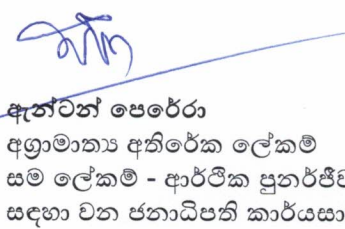 ඇන්ටන් පෙරේරා
අග්‍රාමාත්‍ය අතිරේක ලේකම්
සම ලේකම් - ආර්ථික පුනර්ජීව
සඳහා වන ජනාධිපති කාර්යසා